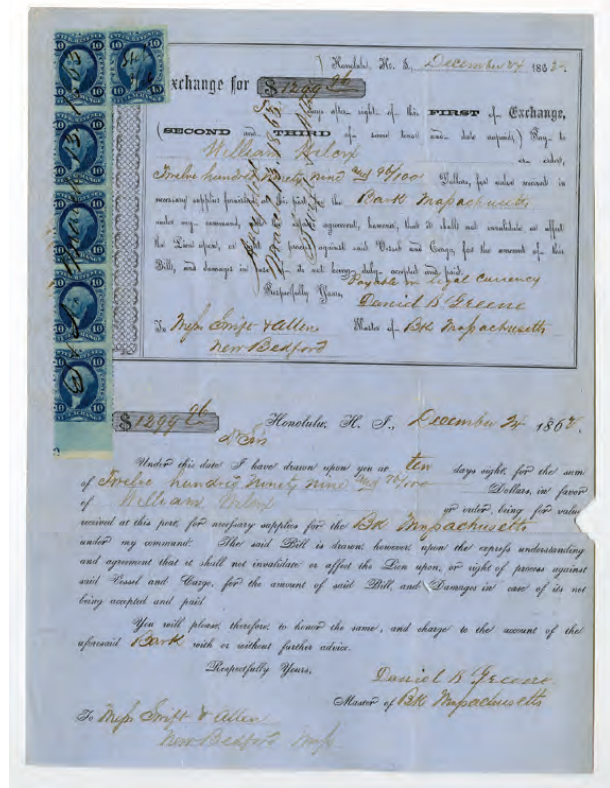 Honolulu, H. I., December 24 1862.
Exchange for $1299 96
days after sight of this FIRST of Exchange,
(SECOND and THIRD of same tenor and date unpaid) Pay to
William Wilcox
or order,
Twelve hundred ninety nine and 96/100 Dollars, for value received in
necessary supplies furnished at this port for the Bark Massachusetts
under my command, agreement, however, that it shall not invalidate or affect
the Lien upon, or right of process against said Vessel and Cargo, for the amount of this
Bill, and damages in case of its not being duly accepted and paid.
Payable in legal currency
Respectfully Yours,
Daniel B Greene
To Mess Swift & Allen Master of Bk Massachusetts
New Bedford
$1299 96 Honolulu, H. I., December 24 1862.
Under this date I have drawn upon you at ten days sight, for the sum
of Twelve hundred ninety nine and 96/100 Dollars, in favor
of William Wilcox or order, being for value
received at this port, for necessary supplies for the Bk Massachusetts
under my command. The said Bill is drawn, however, upon the express understanding
and agreement that it shall not invalidate or affect the Lien upon, or right of process against
said Vessel and Cargo, for the amount of said Bill, and Damages in case of its not
being accepted and paid
You will please, therefore, to honor the same, and charge to the account of the
aforesaid Bark with or without further advice.
Respectfully Yours,
Daniel B Greene
Master of Bk Massachusetts
To Mess Swift & Allen
New Bedford Mass